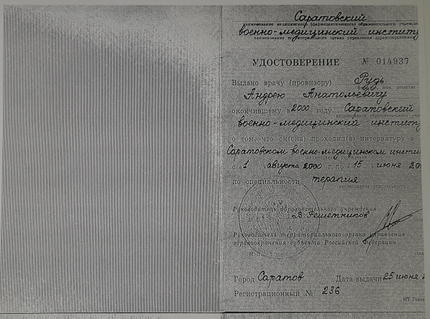 Саратовский
военно-медицинский институт
УДОСТОВЕРЕНИЕ № 014937
Выдано врачу (провизору) Рудь
Андрею Анатольевичу
окончившему в 2000 году Саратовский
военно-медицинский институт
о том, что он(она) проходил(а) интернатуру в
Саратовском военно-медицинском инсти
1 августа 2000 г. 15 июне 20
по специальности терапия
Руководитель образовательного учреждения
В. Решетников
Руководитель территориального органа управления
здравоохранения субъекта Российской Федерации
Город Саратов Дата выдачи 25 июня
Регистрационный № 236